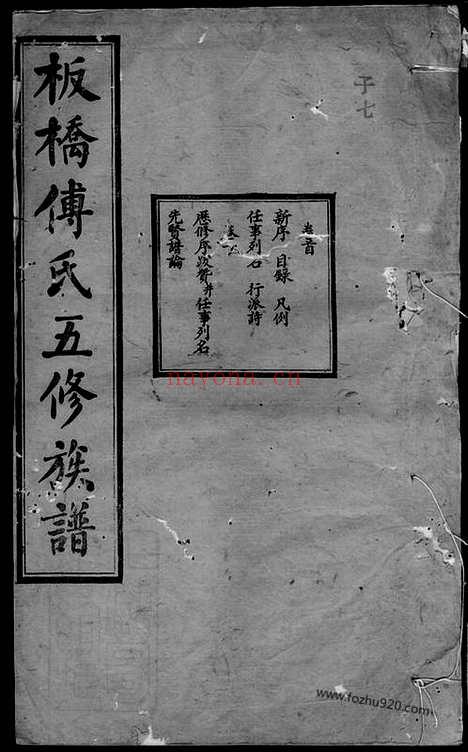 板橋傅氏五修族譜
于七
卷首
新序 目錄 凡例
任事列名 行派詩
卷一
歷修序跋贊并任事列名
先賢譜論
nayona.cn
www.fozhu920.com